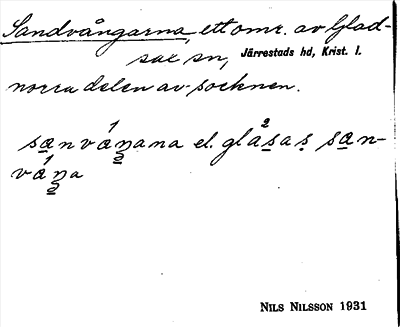 Sandvångarna, ett omr. av Glad-
sax sn, Järrestads hd, Krist. l.
norra delen av socknen.
sa̲nvá̲ŋana el. glàsas sa̲n-
vá̲ŋa
NILS NILSSON 1931